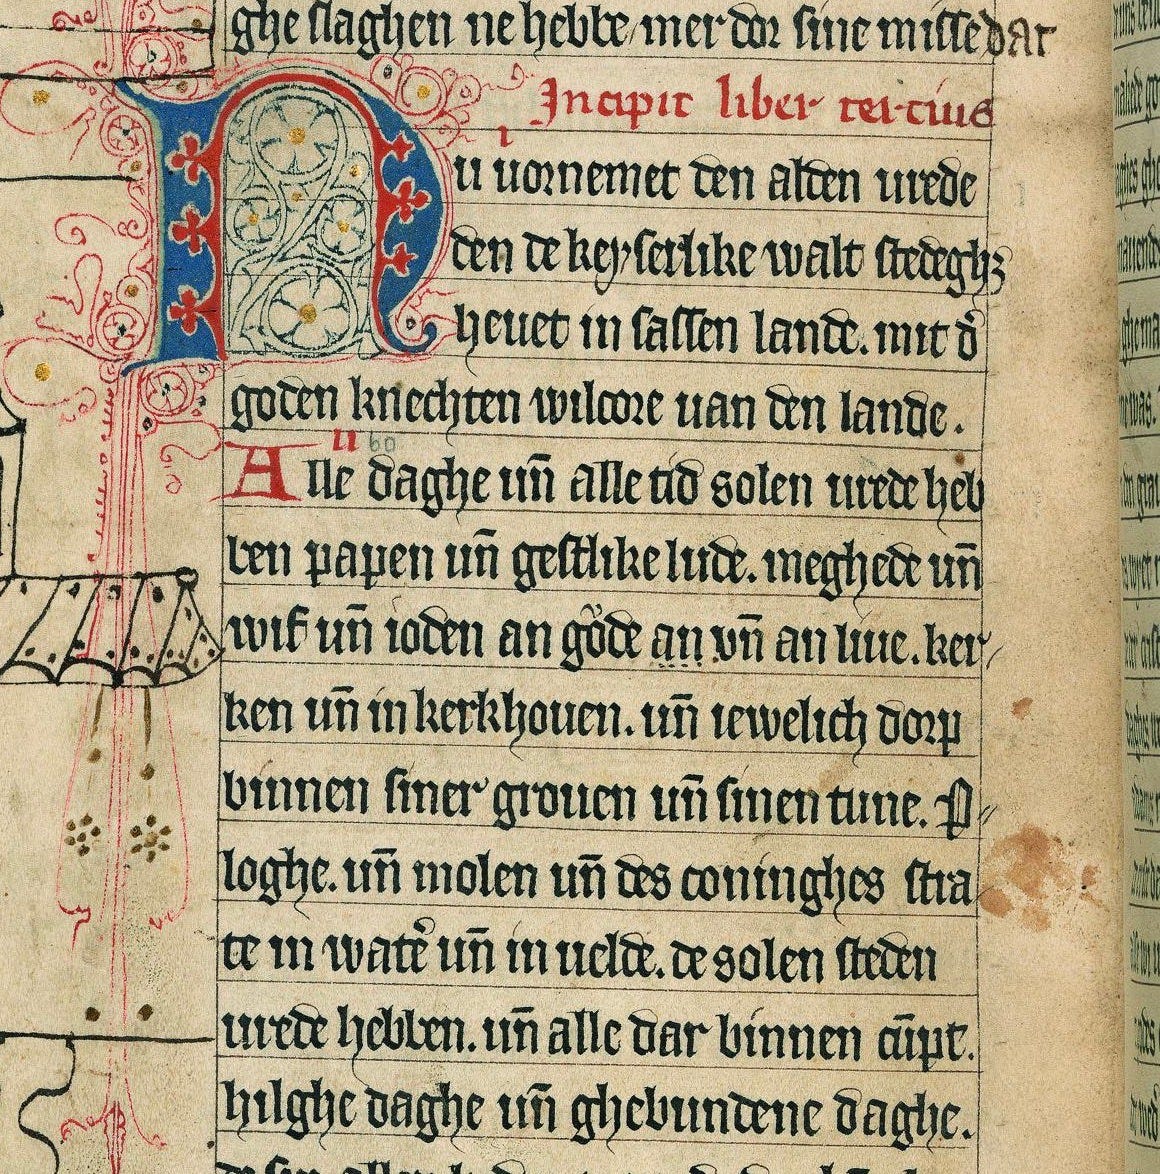 ghe slaghen ne hebbe/mer dor sine misse dat
Incipit liber tercius
i
Nu uornemet den alden urede
den de keyserlike walt stedeghʒ
heuet in sassen lande. mit d᷎
goden knechten wilcore uan den lande.
ii 60
Alle daghe un̄ alle tid solen urede heb
ben papen un̄ gestlike lude. meghede un̄
wif un̄ ioden an gůde an vn̄ an liue. ker⸗
ken un̄ in kerkhouen. un̄ iewelich dorp
binnen siner grouen un̄ sinen tune. P⸗
loghe. un̄ molen un̄ des coninghes stra
te in wat̉e un̄ in uelde. de solen steden
urede hebben. un̄ alle dar binnen cūpt.
hilghe daghe un̄ ghebundene daghe.